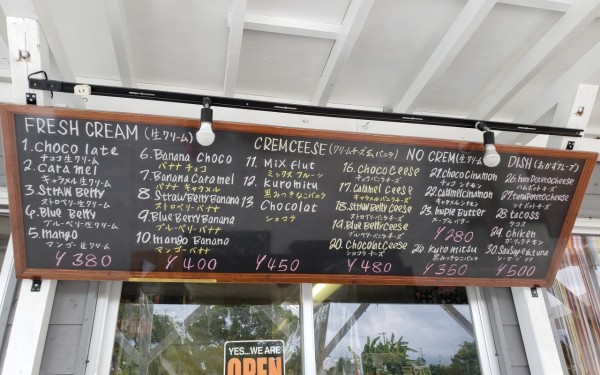 FRESH CREAM (生クリーム)
1. Chocolate
チョコ 生クリーム
2. Catamel
キャラメル 生クリーム
3. Straw Betty
ストロベリー 生クリーム
4. Blue Betty
ブルーベリー 生クリーム
5. mango
マンゴー 生クリーム
¥380
6. Banana Choco
バナナ チョコ
7. Banana Caramel
バナナ キャラメル
8. Straw Betty Banana
ストロベリー バナナ
9. Blue Betty Banana
ブルーベリー バナナ
10. mango Banana
マンゴー バナナ
¥400
CREMCEESE (クリームチーズ&バニラ)
11. Mix flut
ミックス フルーツ
12. kuromitu
黒みつきなこバニラ
13 Chocolat
ショコラ
¥450
16. Choco Ceese
チョコバニラチーズ
17. Calamel Ceese
キャラメルバニラチーズ
18. Straw Betty Ceese
ストロベリーバニラチーズ
19. Blue Betty Ceese
ブルーベリーバニラチーズ
20. Chocolat Ceese
ショコラ チーズ
¥480
NO CREM (生クリーム
21. Choco Cinnamon
チョコ シナモン
22. Calamel Cinnamon
キャラメルシナモン
23. maple Butter
メープルバター
¥280
24. kuto mitsu
黒みつきなこバニラ
¥350
DISH (おかずクレープ)
26.
ハムポテトチーズ
27.
ツナポテトチーズ
28 tacoss
タコス
29. Chiken
ガーリックチキン
30.
ソーセージ
¥500
YES...WE ARE
OPEN